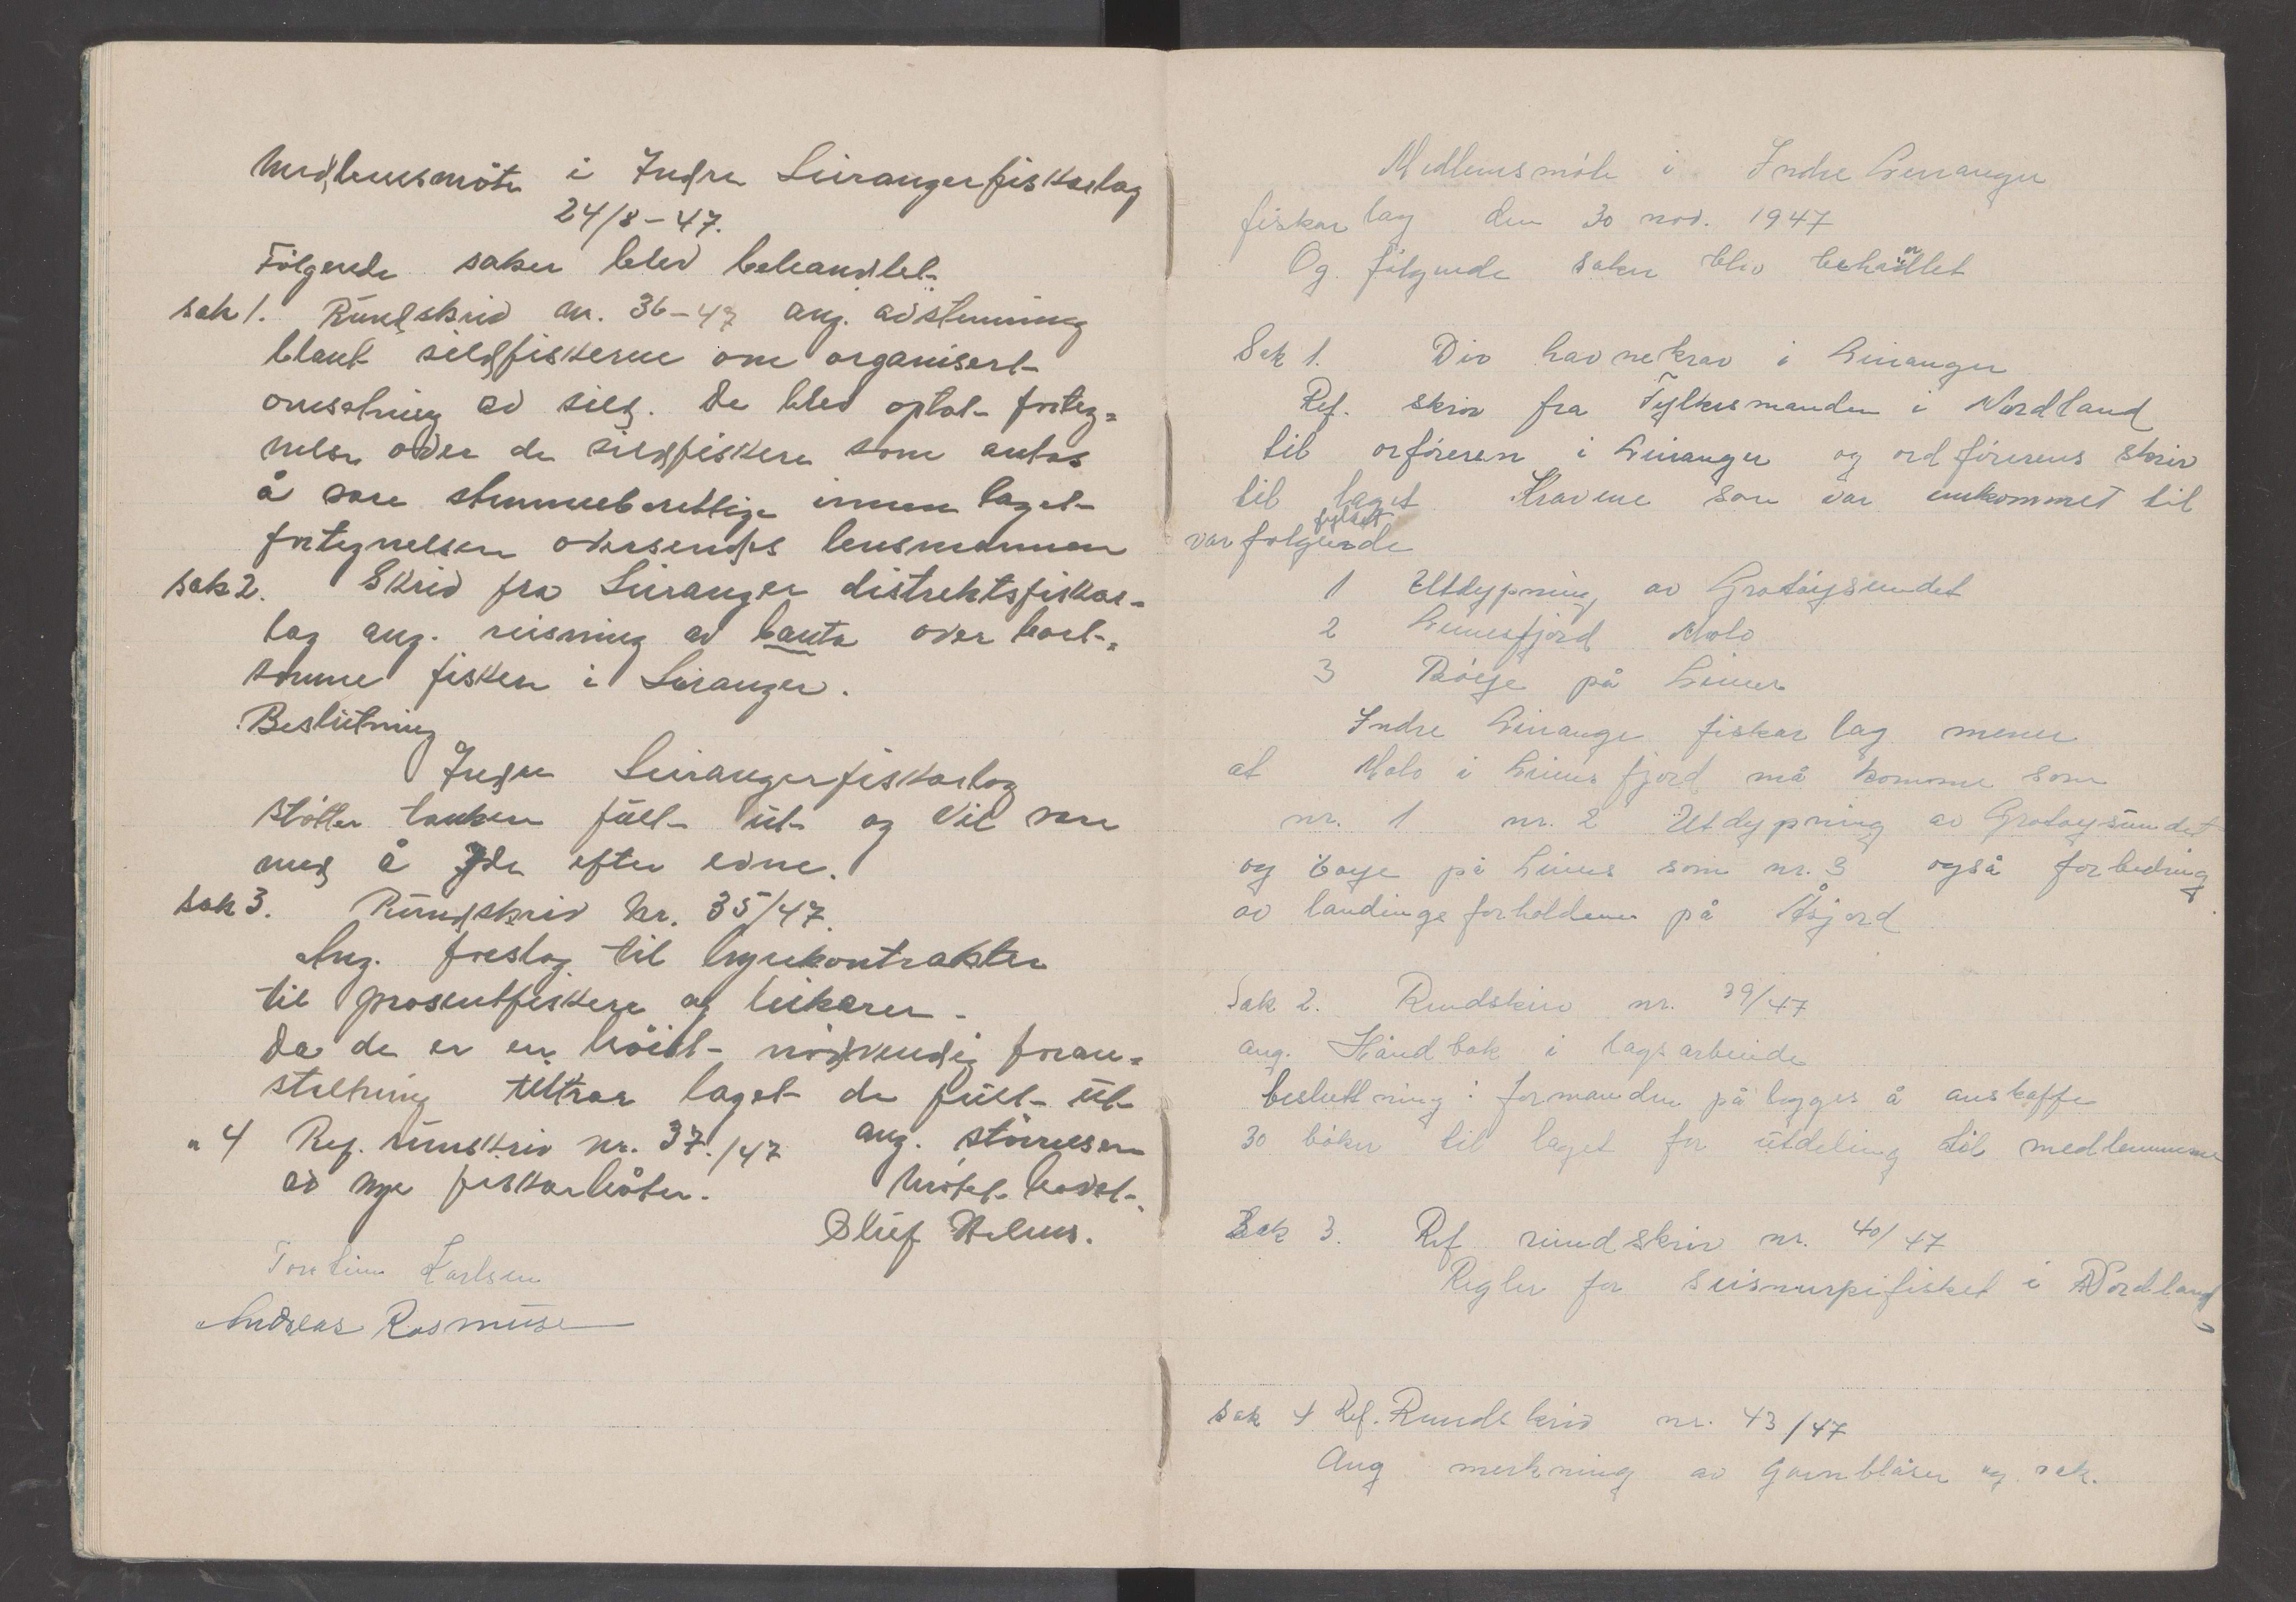 Medlemsmøte i Indre Leirangerfiskarlag
24/8-47.
Følgende saker blev behandlet.
sak 1. Rundskriv nr. 36-47 ang. avstemning
blant sildfiskerne om organisert
omsetning av sild. De blev optat forteg=
nelse over de sildfiskere som antas
å være stemmeberettige innen laget
fortegnelsen oversendes lensmannen
sak 2. Skriv fra Leiranger distrektsfiskar-
lag ang. reisning av bauta over bort-
komne fisker i Leiranger.
Beslutning
Indre Leirangerfiskarlag
støtter tanken fult ut og vil være
med å yde efter evne.
sak 3. Rundskriv Nr. 35/47.
Ang. forslag til hyrekontrakter
til prosentfiskere og leikarer.
Da de er en høist nødvendig foran=
staltning tiltrær laget de fult ut
" 4 Ref. runskriv nr. 37./47 ang. størrelsen
av nye fiskarbåter. Møtet hevet.
Oluf Helnes.
Torstein Karlsen
Andreas Rasmusen
Medlemsmøte i Indre Leiranger
fiskarlag den 30 nov. 1947
Og følgende saker blev behandlet
Sak 1. Div havnekrav i Leiranger
Ref. skriv fra Fylkesmanden i Nordland
til orføreren i Leiranger og ordførerens skriv
til laget Kravene som var innkommet til
fylket
var følgende
1 Utdypning av Grøtøysundet
2 Leinesfjord Molo
3 Bøye på Leines
Indre Leirange fiskarlag mener
at Molo i Leinesfjord må komme som
nr. 1 nr. 2 Utdypning av Grøtøysundet
og bøye på Leines som nr. 3 også forbedring
av landingsforholdene på Åsjord
Sak 2. Rundskriv nr. 39/47
ang. Håndbok i lagsarbeide
beslutning: formanden pålegges å anskaffe
30 bøker til laget for utdeling til medlemmene
Sak 3. Ref rundskriv nr. 40/47
Regler for seisnurpefisket i Nordland
Sak 4 Ref. Rundskriv nr. 43/47
Ang merkning av Garnblåser og vak.